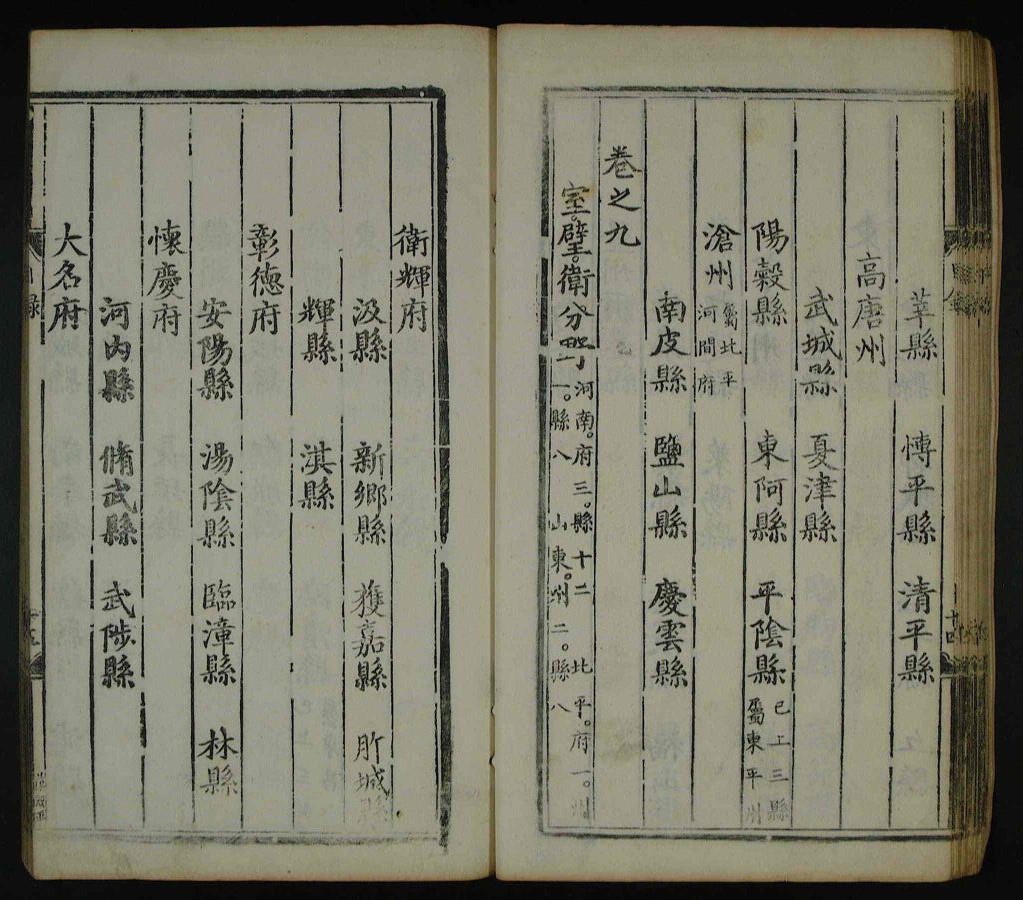 莘縣 博平縣 清平縣
高唐州
武城縣 夏津縣
陽穀縣 東阿縣 平陰縣 已上三縣屬東平州
滄州 屬北平河間府
南皮縣 鹽山縣 慶雲縣
卷之九
室。壁。衛分野 河南。府三。縣十二 北平。府一。州一。縣八 山東。州二。縣八
衛輝府
汲縣 新鄉縣 獲嘉縣 胙城縣
輝縣 淇縣
彰德府
安陽縣 湯陰縣 臨漳縣 林縣
懷慶府
河內縣 脩武縣 武陟縣
大名府
目錄